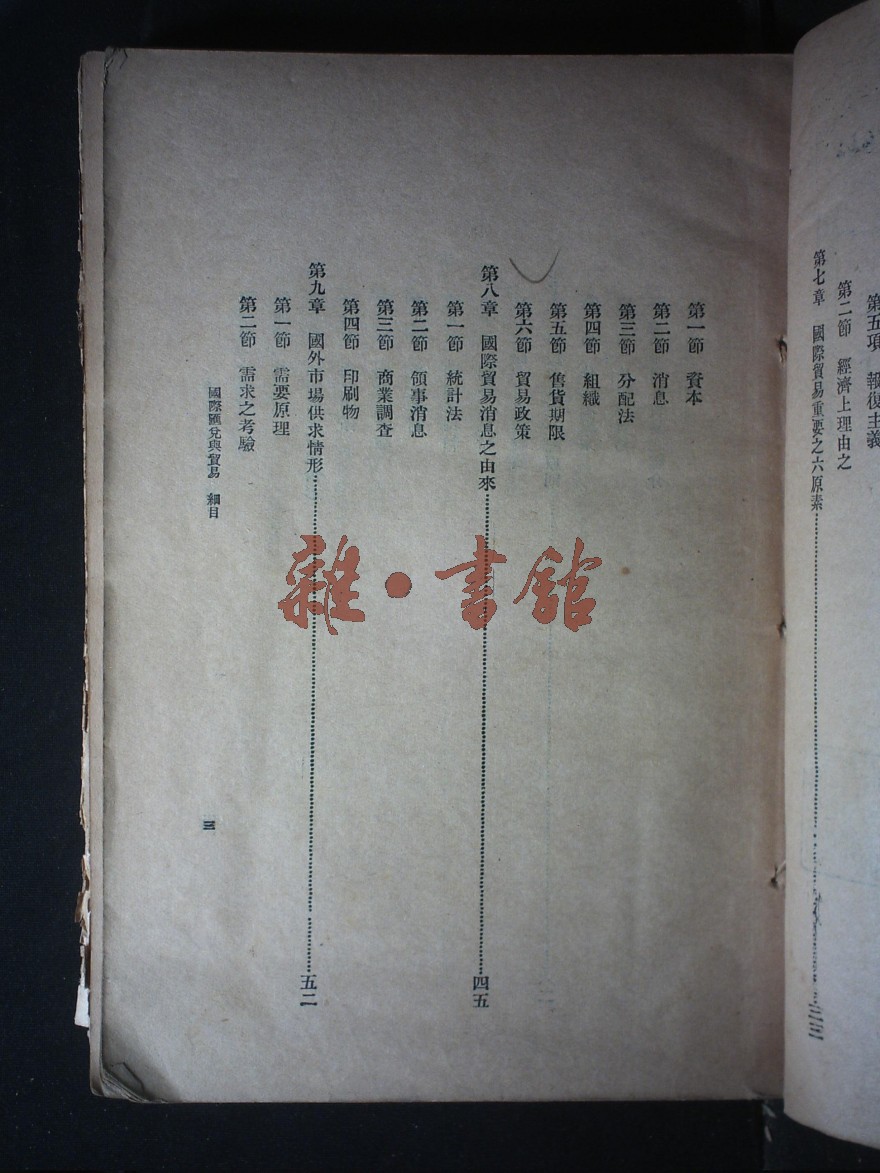 第五項　報復主義
第二節　經濟上理由之
第七章　國際貿易重要之六原素
第一節　資本
第二節　消息
第三節　分配法
第四節　組織
第五節　售貨期限
第六節　貿易政策
第八章　國際貿易消息之由來……四五
第一節　統計法
第二節　領事消息
第三節　商業調查
第四節　印刷物
第九章　國外市場供求情形……五二
第一節　需要原理
第二節　需求之考驗
國際匯兌與貿易　細目
三
雜·書館